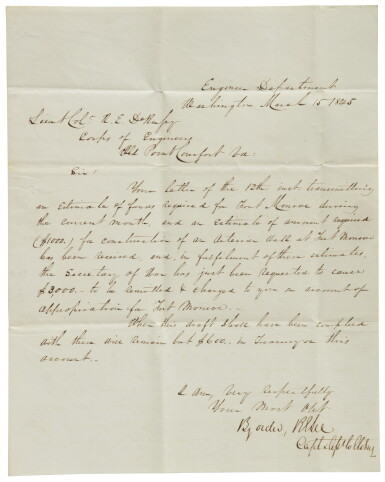 Engineer Department
Washington March 15 1845
Lieut Col. R. E. DeRussy
Corps of Engineers
Old Point Comfort Va:
Sir!
Your letter of the 12th inst transmitting
an estimate of funds required for Fort Monroe during
the current month, and an estimate of amount required
($1000.) for construction of an Artesian Well at Fort Monroe
has been received, and, in fulfilment of these estimates,
the Secretary of War has just been requested to cause
$3,000.- to be remitted & charged to you on account of
appropriation for Fort Monroe.-
When this draft shall have been complied
with there will remain but $600. in Treasury on this
account.-
I am, very respectfully
Your Most Obt
By order, R E Lee
Capt